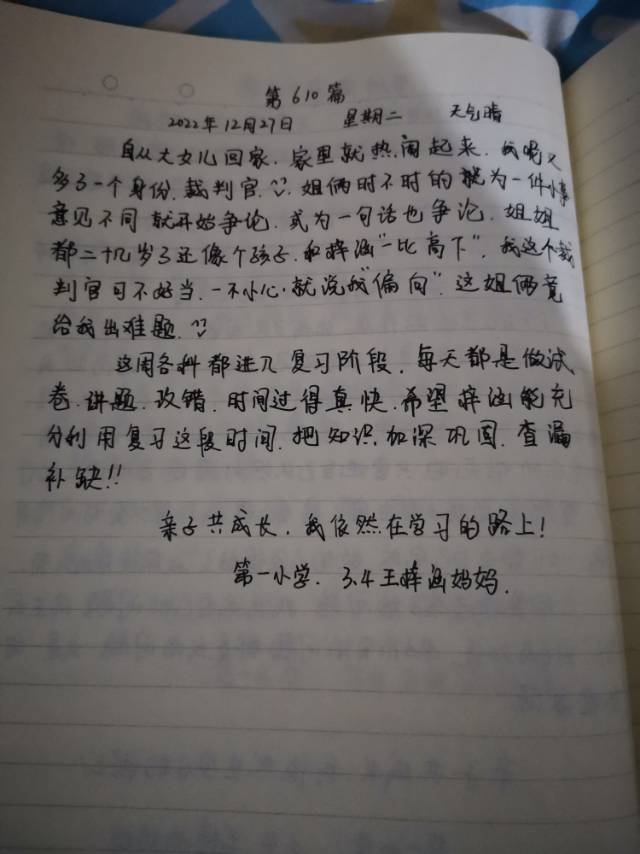 第610篇
2022年12月27日 星期二 天气晴
自从大女儿回家，家里就热闹起来，我呢又
多了一个身份，裁判官，姐俩时不时的就为一件小事
意见不同就开始争论，或为一句话也争论，姐姐
都二十几岁了还像个孩子，和梓涵“一比高下”，我这个裁
判官可不好当，一不小心，就说我“偏向”，这姐俩竟
给我出难题，
这周各科都进入复习阶段，每天都是做试
卷、讲题、改错，时间过得真快，希望梓涵能充
分利用复习这段时间，把知识，加深巩固，查漏
补缺!!
亲子共成长，我依然在学习的路上！
第一小学，3.4王梓涵妈妈.